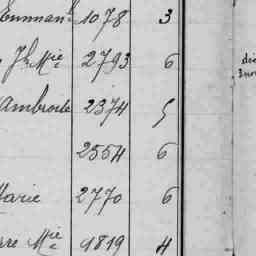 1078 3
Jh Mie 2793 6
Ambroise 2374 5
2554 6
Marie 2770 6
Mie 1819 4